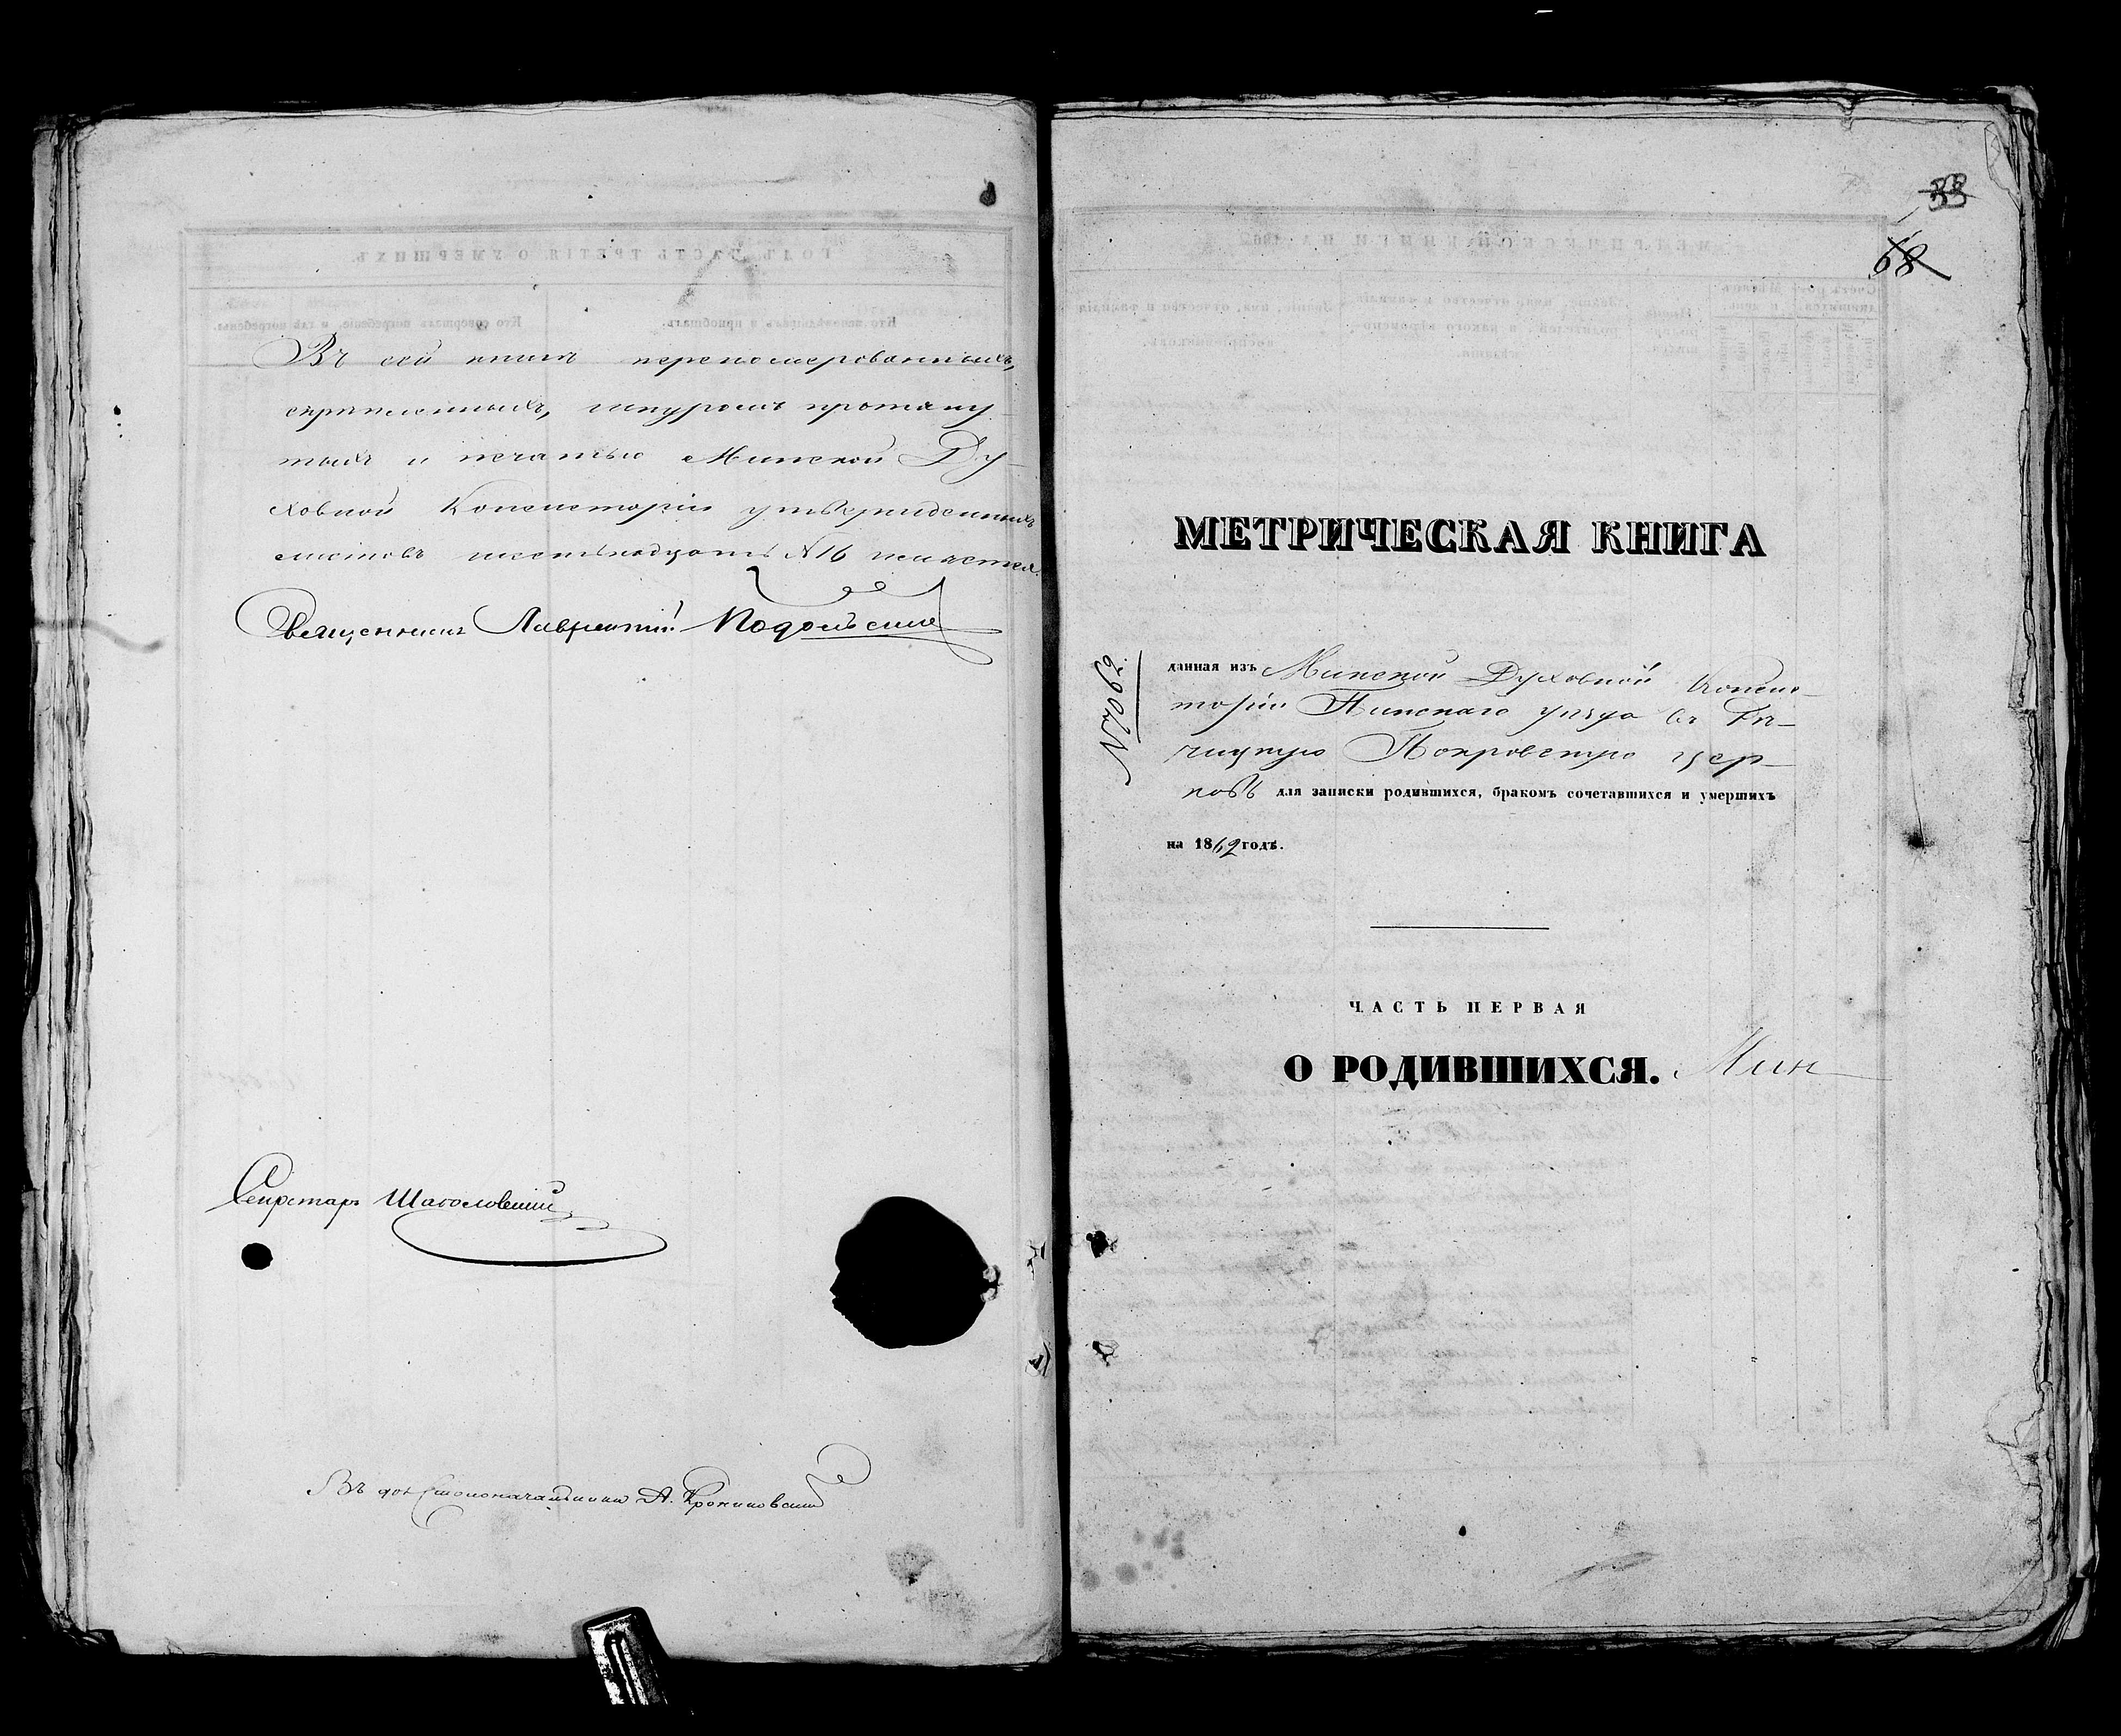 Въ сей книгѣ перенумерованныхъ,
скрѣпленныхъ, шнуромъ протяну-
тыхъ и печатью Минской Ду-
ховной Консисторіи утвержденныхъ
листовъ шестьнадцать N 16 имѣется.
Священникъ Лаврентій Подольскій
Секретарь
Въ дол. Столоначальника А.
33
68
МЕТРИЧЕСКАЯ КНИГА
N 7062
данная изъ Минской Духовной Консис-
торіи Пинскаго уѣзда въ
Покровскую цер-
ковь для записки родившихся, бракомъ сочетавшихся и умершихъ
на 1862 годъ.
ЧАСТЬ ПЕРВАЯ
О РОДИВШИХСЯ. Мин